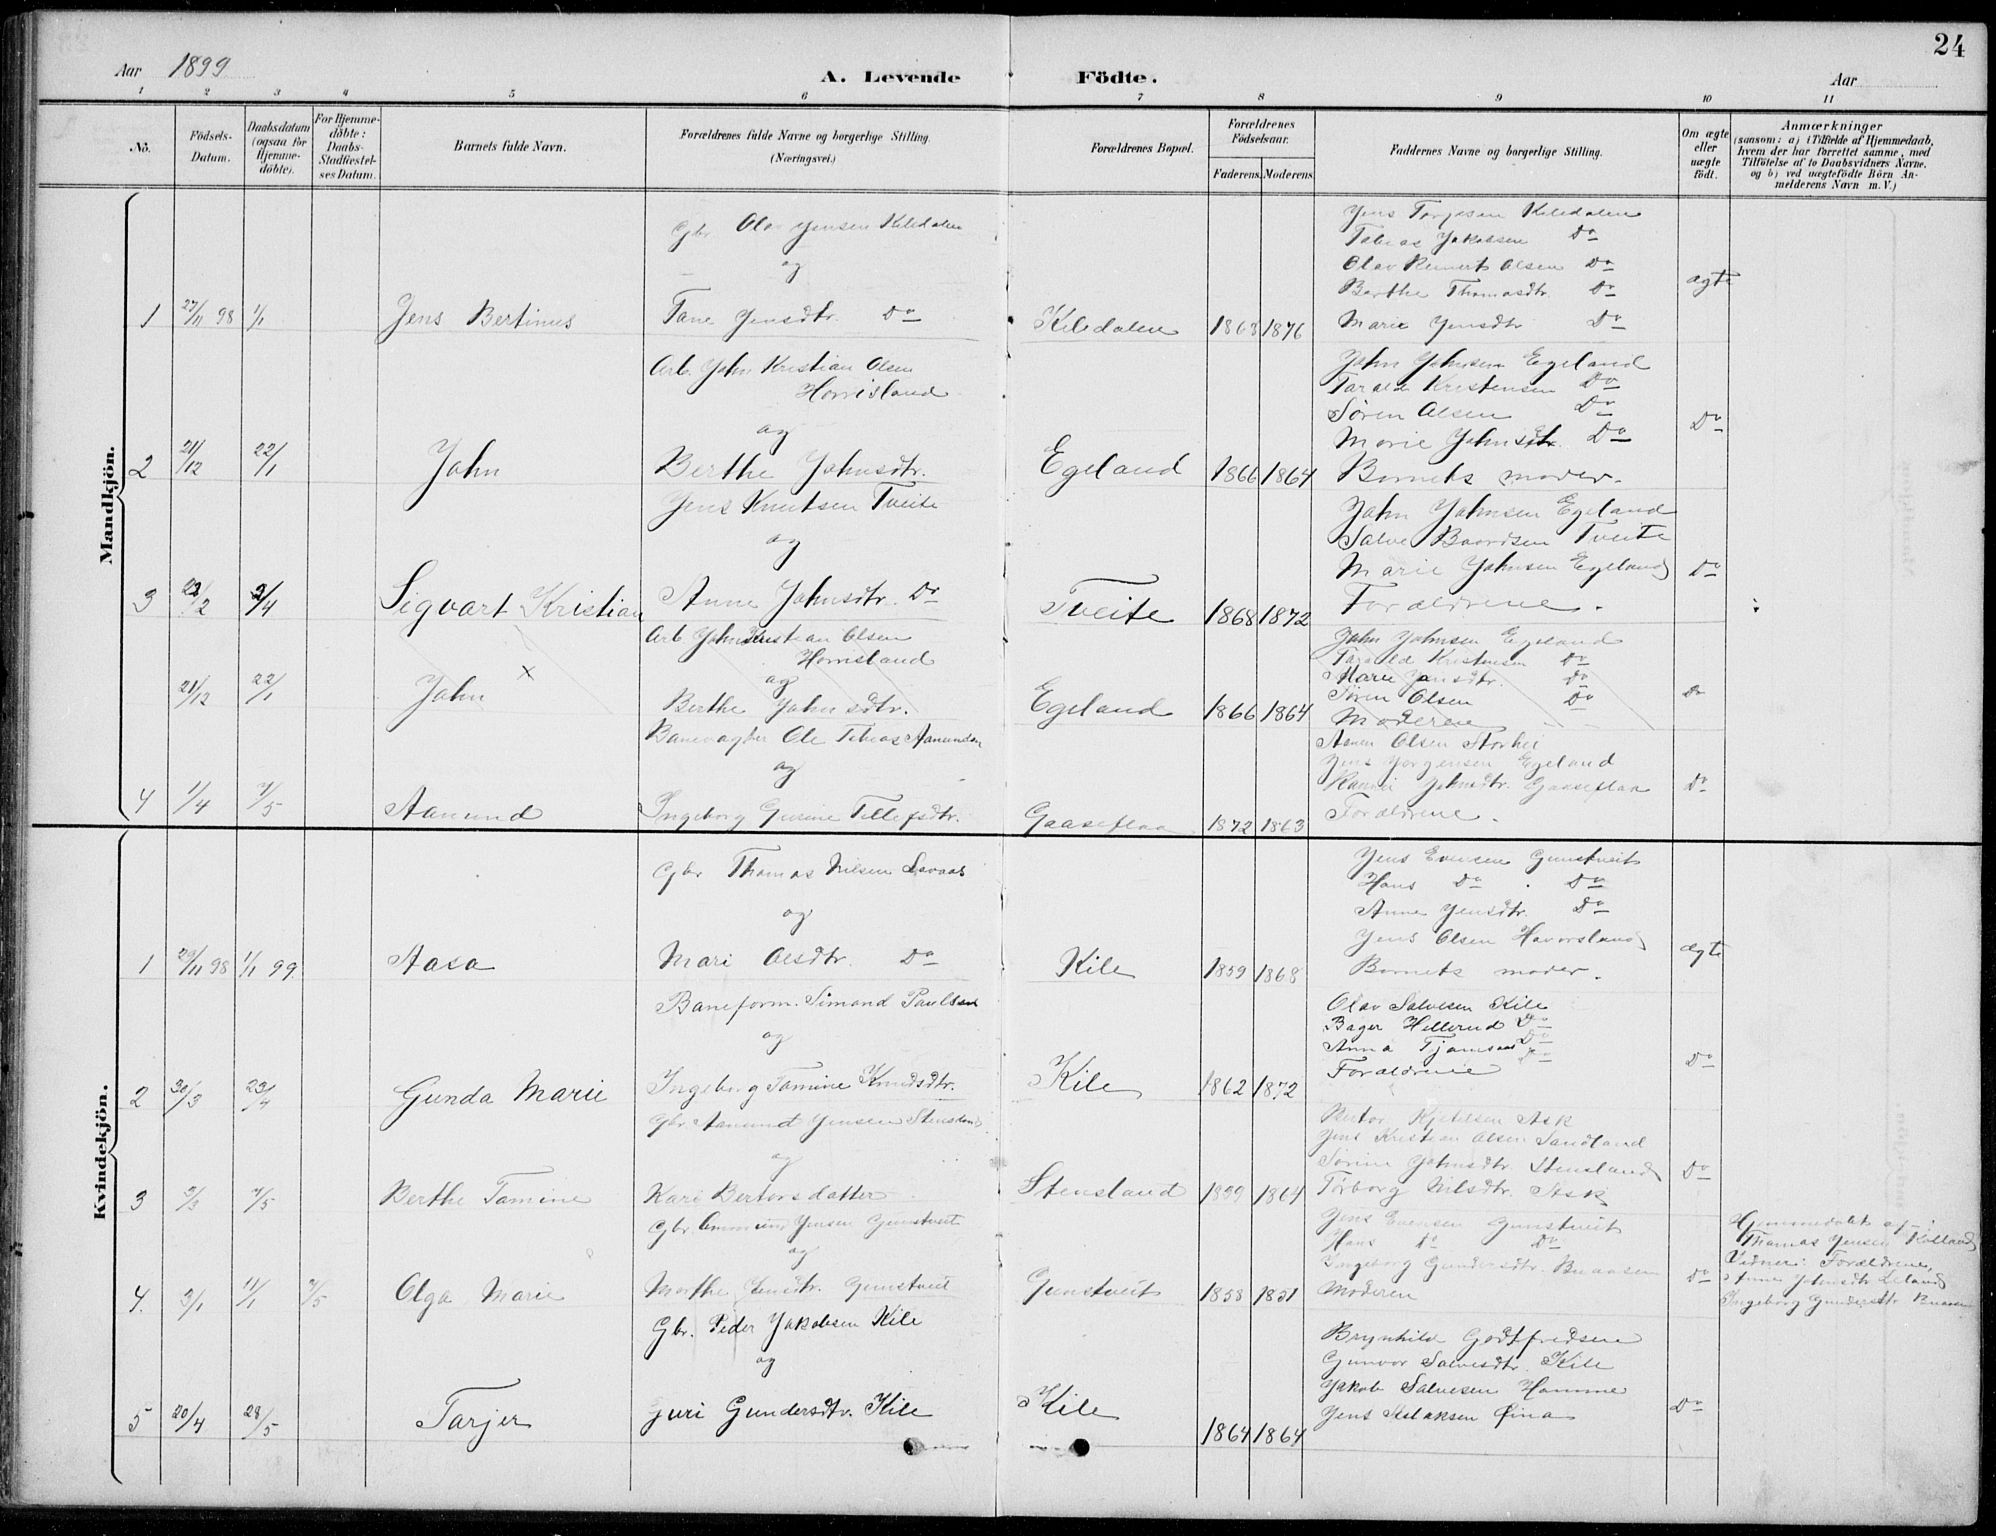 24
Aar 1899
A. Levende Födte.
Aar
1 2 3 4 5 6 7 8 9 10 11
No.
Födsels-Datum.
Daabsdatum (ogsaa for Hjemme-döbte).
For Hjemme-döbte: Daabs-Stadfæstel-ses Datum.
Barnets fulde Navn.
Forældrenes fulde Navne og borgerlige Stilling. (Næringsvei.)
Forældrenes Bopæl.
Forældrenes Födselsaar.
Faderens. Moderens.
Faddernes Navne og borgerlige Stilling.
Om ægte eller uægte födt.
Anmærkninger
(saasom: a) i Tilfælde af Hjemmedaab,
hvem der har forrettet samme, med
Tilföielse af to Daabsvidners Navne.
og b) ved uægtefödte Börn An-
melderens Navn m. V.)
Mandkjön.
Gbr Olav Jensen Kiledalen
og
1 27/11 98 1/1 Jens Bertinus Tane Jensdtr. Do Kiledalen 1863 1876
Jens Torjesen Kiledalen
Tobias Jakobsen Do
Olav Reinert Olsen Do
Berthe Thomasdtr. Do
Marie Jensdtr Do
ægte
Arb. John Kristian Olsen
Horrisland
og
2 21/12 22/1 John Berthe Johnsdtr. Egeland 1866 1864
John Johnsen Egeland
Tarald Kristensen Do
Søren Olsen Do
Marie Johnsdtr. Do
Barnets moder.
Do
Jens Knutsen Tveite
og
3 2/4 Sigvart Kristian Anne Johnsdtr. Do Tveite 1868 1872
John Johnsen Egeland
Salve Baardsen Tveite
Marie Johnsen Egeland
Forældrene.
Do
Arb John Kristian Olsen
Horrisland
og
21/12 22/1 John x Berthe Johnsdtr. Egeland 1866 1864
John Johnsen Egeland
Tarald Kristensen Do
Marie Jensdtr. Do
Søren Olsen Do
Moderen
Do
Banevagter Ole Tobias Aanundsen
og
4 1/4 7/5 Aanund Ingeborg Gurine Tellefsdtr. Gaaseflaa 1872 1863
Olsen Storhei
Jens Jörgensen Egeland
Johnsdtr. Gaaseflaa
Forældrene.
Do
Kvindekjön.
Gbr Thomas Nilsen
og
1 29/11 98 1/1 99 Aasa Mari Olsdtr. Do Kile 1859 1868
Jens Evensen Gunstveit
Hans Do Do
Anne Jensdtr. Do
Jens Olsen Haverstand
Barnets moder.
ægte
Baneform. Simond Paulsen
og
2 30/3 23/4 Gunda Marie Ingeborg Tomine Knudsdtr. Kile 1862 1872
Olav Salvesen Kile
Bager Hellerud Do
Anna Tjomsaas Do
Forældrene Do
Do
Gbr. Aanund Jensen Stensland
og
3 3/3 7/5 Berthe Tomine Kari Bertorsdatter Stensland 1859 1864
Bertor Kjetelsen Ask
Jens Kristian Olsen Sandland
Sörine Johnsdtr. Stensland
Torborg Nilsdtr. Ask
Do
Gbr. Jensen Gunstveit
og
4. 3/1 11/1 7/5 Olga Marie Marthe Gunstveit Gunstveit 1858 1851
Jens Evensen Gunstveit
Hans Do Do
Ingeborg Gundersdtr. Buaasen
Moderen
Do
Hjemmedöbt af:
Thomas Jensen
Vidner: Forældrene,
Anne Johnsdtr
Ingeborg Gundersdtr Buaasen
Gbr. Peder Jakobsen Kile
og
5 20/4 28/5 Tarjer Guri Gundersdtr. Kile Kile 1864 1864
Brynhild Godtfredsen
Gunvor Salvesdtr. Kile
Jakob Salvesen Homme
Jens Aslaksen
Do